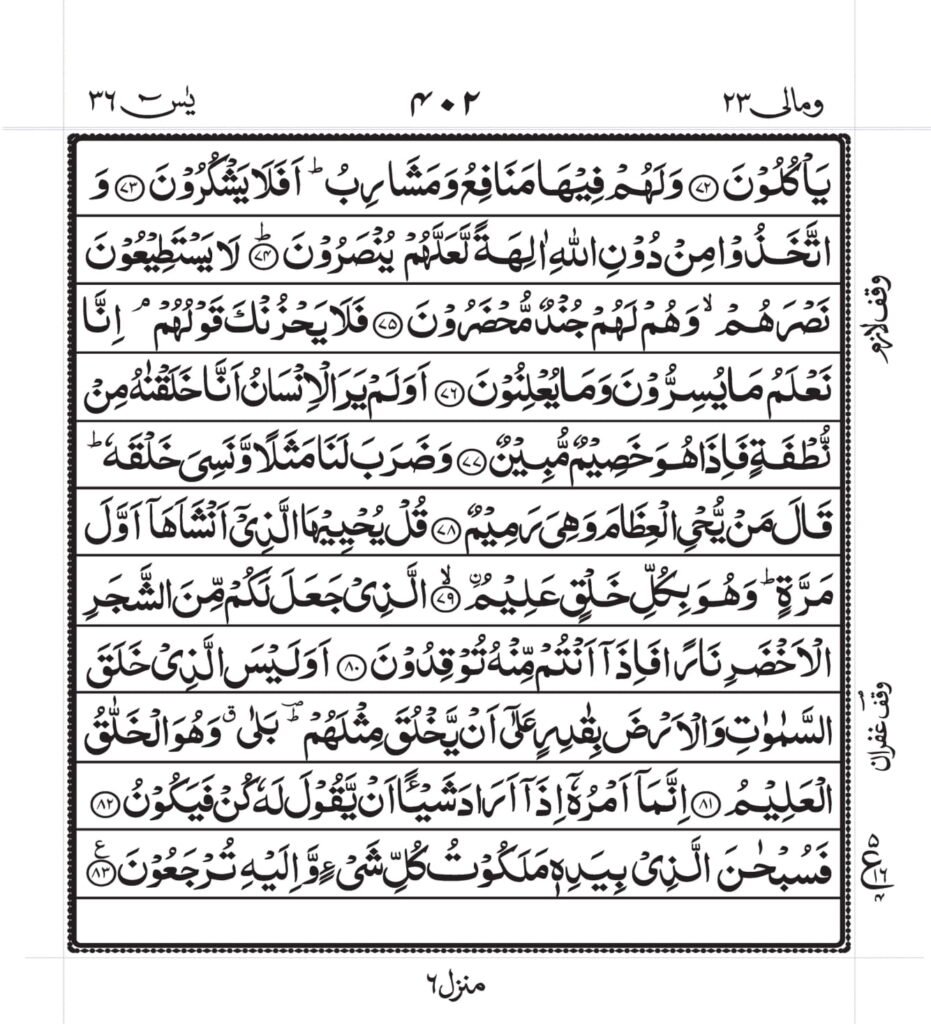 ومالی ۲۳
۴۰۲
یٰسٓ ۳۶
يَاْكُلُوْنَ ﴿۷۲﴾ وَلَهُمْ فِيْهَا مَنَافِعُ وَمَشَارِبُ ؕ اَفَلَا يَشْكُرُوْنَ ﴿۷۳﴾ وَ
اتَّخَذُوْا مِنْ دُوْنِ اللّٰهِ اٰلِهَةً لَّعَلَّهُمْ يُنْصَرُوْنَ ﴿۷۴﴾ؕ لَا يَسْتَطِيْعُوْنَ
نَصْرَهُمْ ۙ وَهُمْ لَهُمْ جُنْدٌ مُّحْضَرُوْنَ ﴿۷۵﴾ فَلَا يَحْزُنْكَ قَوْلُهُمْ ۘ اِنَّا
وقف لازم
نَعْلَمُ مَا يُسِرُّوْنَ وَمَا يُعْلِنُوْنَ ﴿۷۶﴾ اَوَلَمْ يَرَ الْاِنْسَانُ اَنَّا خَلَقْنٰهُ مِنْ
نُّطْفَةٍ فَاِذَا هُوَ خَصِيْمٌ مُّبِيْنٌ ﴿۷۷﴾ وَضَرَبَ لَنَا مَثَلًا وَّنَسِيَ خَلْقَهٗ ؕ
قَالَ مَنْ يُّحْيِ الْعِظَامَ وَهِيَ رَمِيْمٌ ﴿۷۸﴾ قُلْ يُحْيِيْهَا الَّذِيْۤ اَنْشَاَهَاۤ اَوَّلَ
مَرَّةٍ ؕ وَهُوَ بِكُلِّ خَلْقٍ عَلِيْمُ ۨ ﴿۷۹﴾ۙ الَّذِيْ جَعَلَ لَكُمْ مِّنَ الشَّجَرِ
الْاَخْضَرِ نَارًا فَاِذَاۤ اَنْتُمْ مِّنْهُ تُوْقِدُوْنَ ﴿۸۰﴾ اَوَلَيْسَ الَّذِيْ خَلَقَ
السَّمٰوٰتِ وَالْاَرْضَ بِقٰدِرٍ عَلٰۤى اَنْ يَّخْلُقَ مِثْلَهُمْ ؔؕ بَلٰى ۗ وَهُوَ الْخَلّٰقُ
وقف غفران
الْعَلِيْمُ ﴿۸۱﴾ اِنَّمَاۤ اَمْرُهٗۤ اِذَاۤ اَرَادَ شَيْـًٔا اَنْ يَّقُوْلَ لَهٗ كُنْ فَيَكُوْنُ ﴿۸۲﴾
فَسُبْحٰنَ الَّذِيْ بِيَدِهٖ مَلَكُوْتُ كُلِّ شَيْءٍ وَّاِلَيْهِ تُرْجَعُوْنَ ﴿۸۳﴾ع
۵
ع
۱۶
۴
منزل ۶